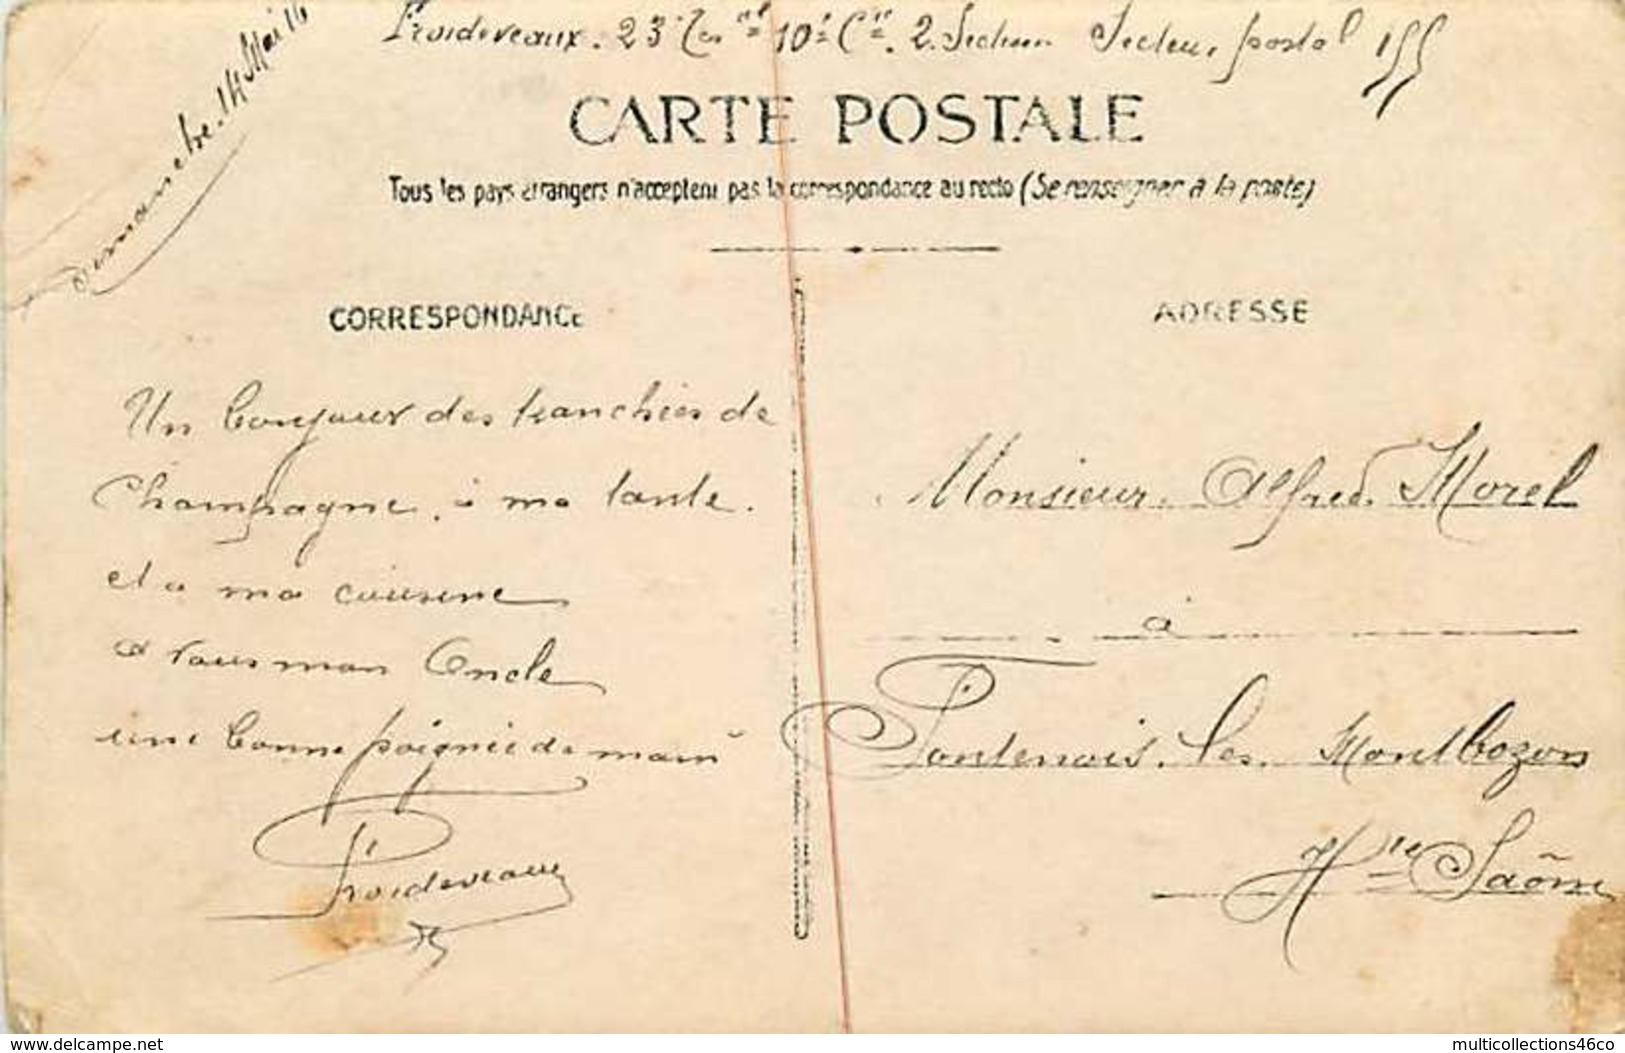 Froideveaux. 23e Ter ial 10e Cie. 2. Section Secteur postal 155
Dimanche. 14 Mai 16
CARTE POSTALE
Tous les pays étrangers n'acceptent pas la correspondance au recto (Se renseigner à la poste)
CORRESPONDANCE
ADRESSE
Un bonjour des tranchées de
Champagne. à ma tante.
et a ma cousine
et vous mon Oncle
une bonne poignée de main
Froideveaux
Monsieur. Alfred. Morel
à
Fontenois. les. Montbozon
Hte Saône
delcampe.net
multicollections46co